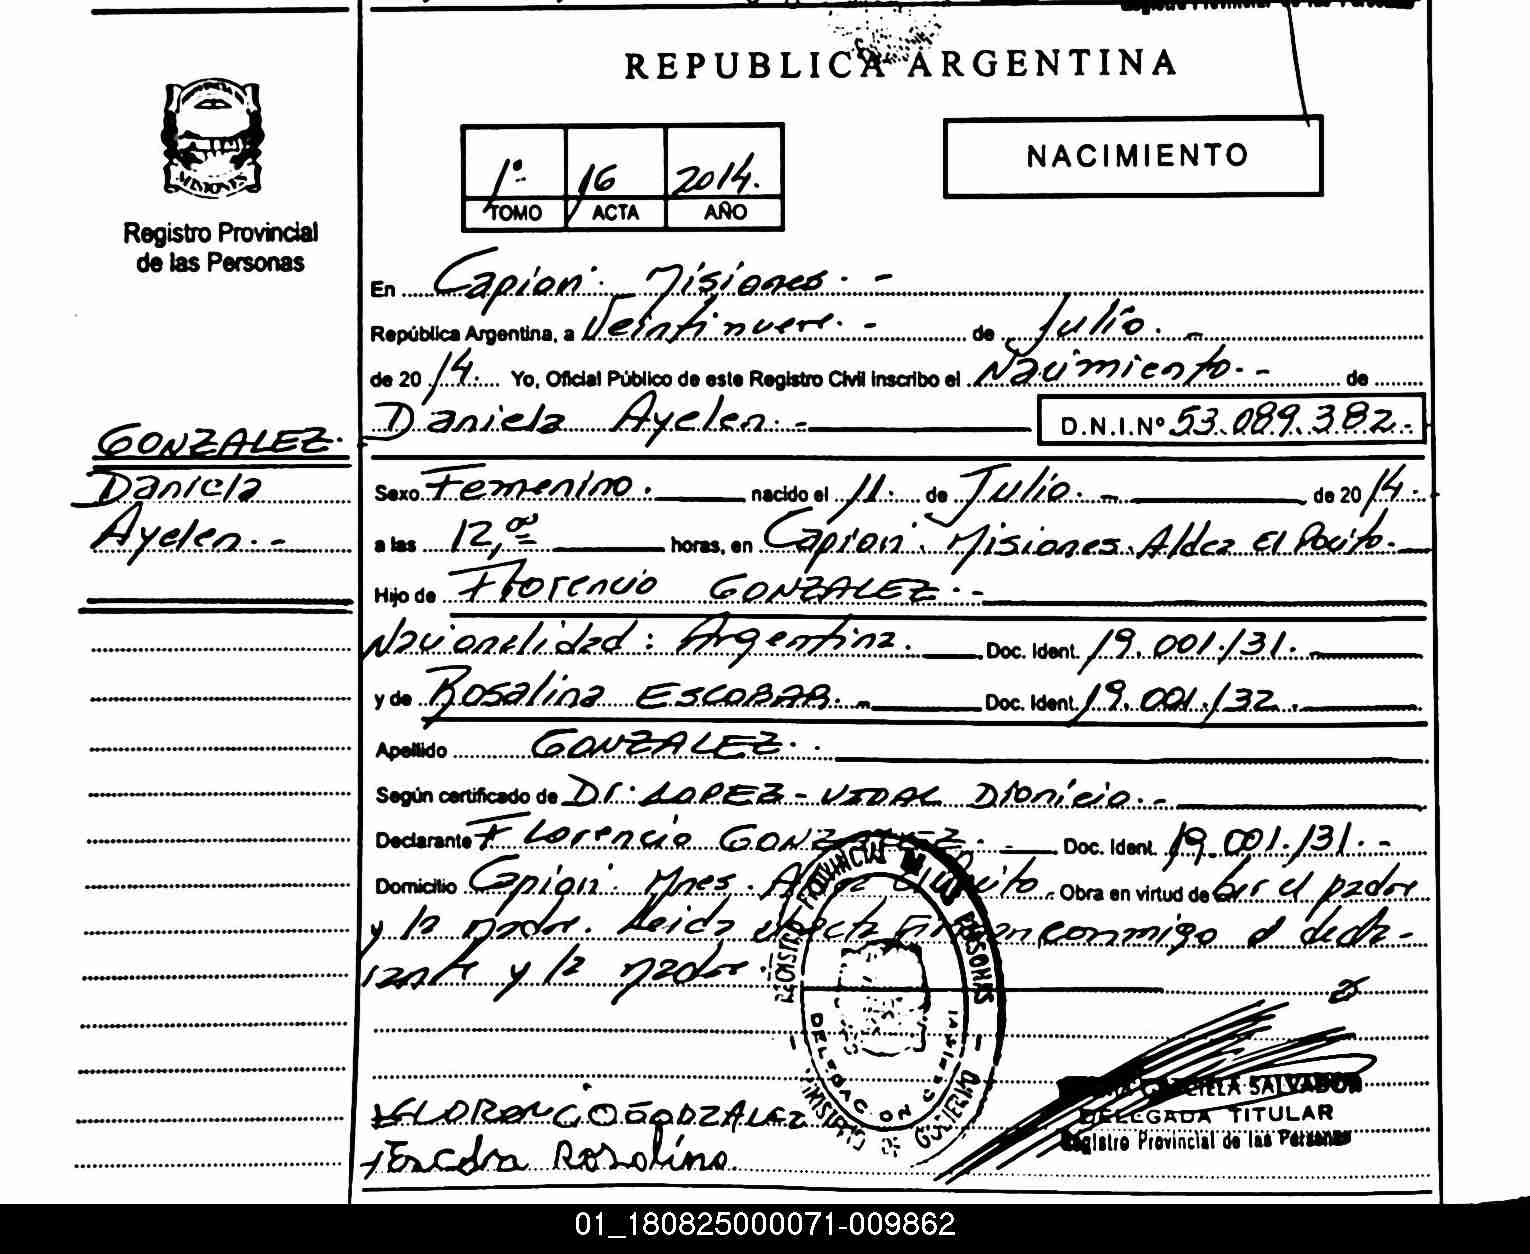 REPUBLICA ARGENTINA
NACIMIENTO
1º 16 2014.
TOMO ACTA AÑO
MISIONES
Registro Provincial
de las Personas
En Capiovi. Misiones. -
República Argentina, a Veintinueve. - de Julio. -
de 20 14. Yo, Oficial Público de este Registro Civil inscribo el Nacimiento. - de
Daniela Ayelen. - D.N.I.Nº 53.089.382.-
GONZALEZ.
Daniela
Ayelen. -
Sexo Femenino. nacido el 11. de Julio. - de 20 14.
a las 12,00 horas, en Capiovi. Misiones. Aldea El Pocito.
Hijo de Florencio GONZALEZ. -
Nacionalidad: Argentina. Doc. Ident. 19.001.131.
y de Rosalina ESCOBAR. - Doc. Ident. 19.001.132.
Apellido GONZALEZ.
Según certificado de Dr. LOPEZ-VIDAL Dionicio. -
Declarante Florencio GONZALEZ. - Doc. Ident. 19.001.131. -
Domicilio Capiovi. Mnes. Aldea El Pocito. Obra en virtud de ser el padre
y la madre. Leida el acta Firman conmigo el decla-
rante y la madre.
REGISTRO PROVINCIAL DE LAS PERSONAS
MINISTERIO DE GOBIERNO
FLORENCIO GONZALEZ
Escobar Rosalina
GRACIELA SALVADOR
DELEGADA TITULAR
Registro Provincial de las Personas
01_180825000071-009862